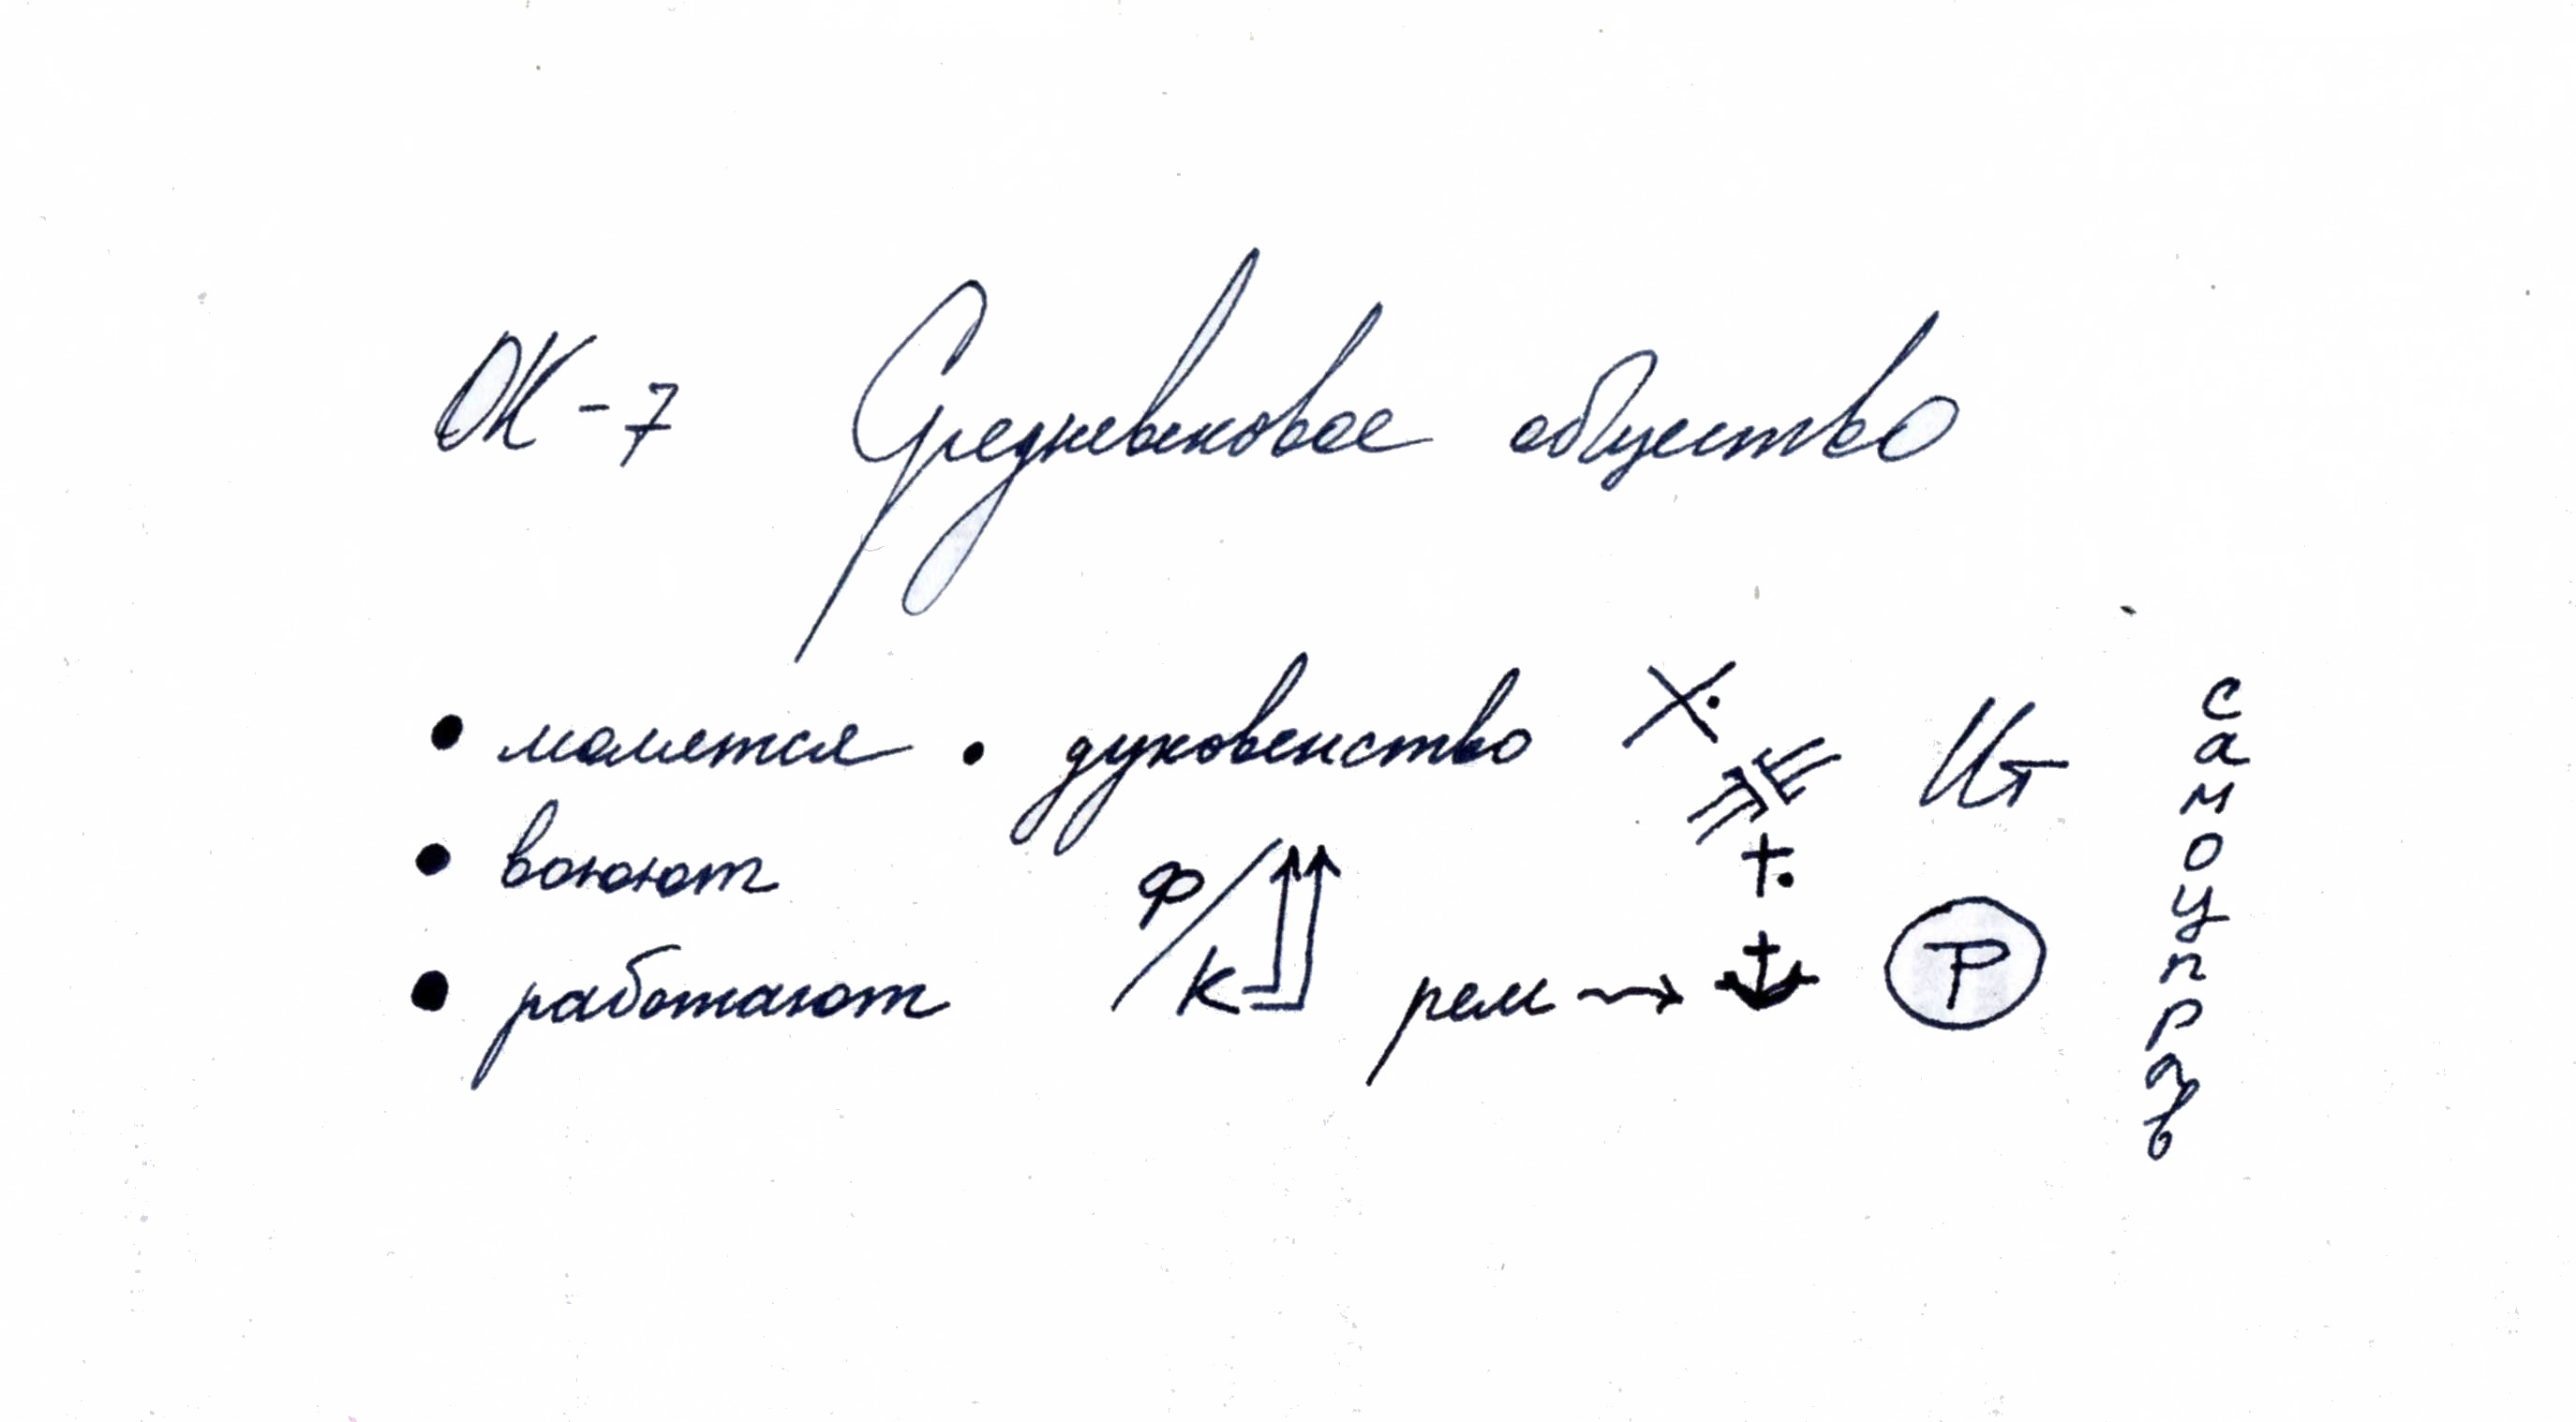 ОК-7 Средневековое общество
• молятся • духовенство
• воюют
• работают
Ф/К
рем →
Р
самоуправ